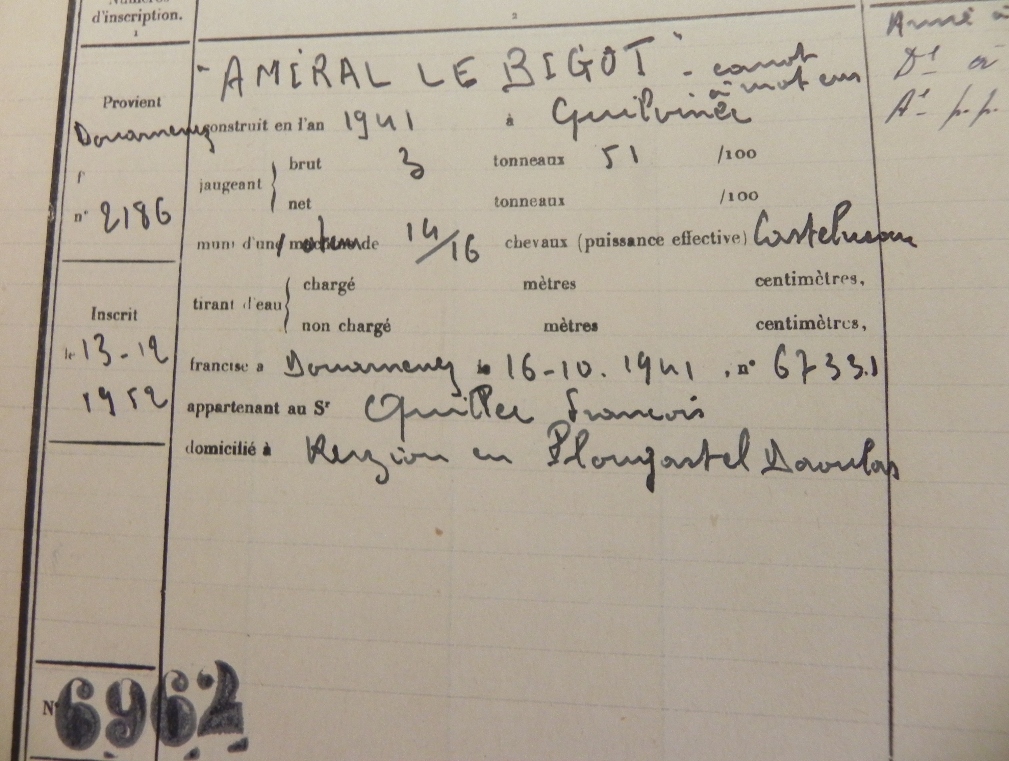 Numéros
d'inscription.
1
2
Provient
Douarnenez
f
n° 2186
Inscrit
le 13-12
1952
N° 6962
"AMIRAL LE BIGOT" - canot
à moteur
construit en l'an 1941 à Guilvinec
jaugeant { brut 3 tonneaux 51 /100
net tonneaux /100
muni d'un moteur de 14/16 chevaux (puissance effective)
tirant d'eau { chargé mètres centimètres,
non chargé mètres centimètres,
francisé à Douarnenez le 16-10.1941, n° 67331
appartenant au Sr Quittec Francois
domicilié à Kerzion en Plougastel Daoulas
Armé à
Dt à
At p.p.